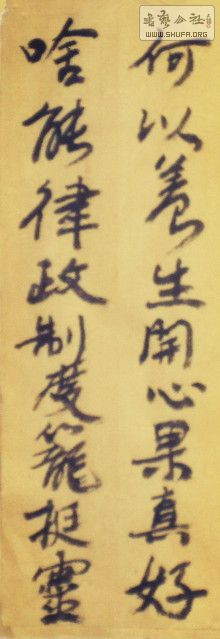 何以養生開心果真好
啥能律政制度籠挺靈
WWW.SHUFA.ORG